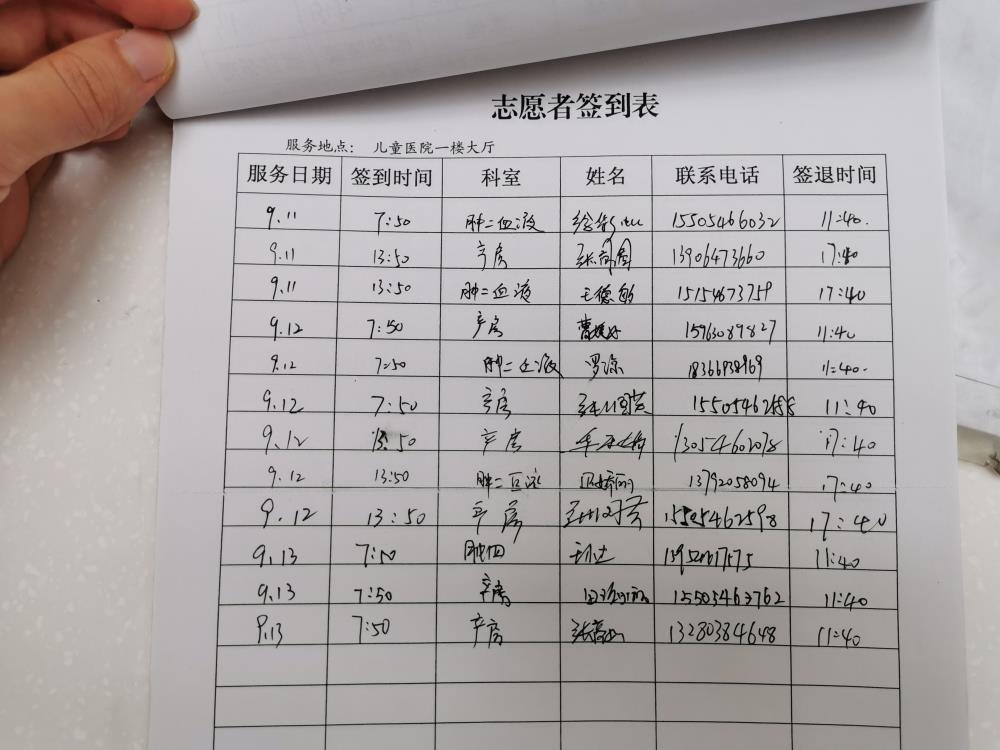 志愿者签到表
服务地点： 儿童医院一楼大厅
服务日期 签到时间 科室 姓名 联系电话 签退时间
9.11 7:50 肿二血液 15505466032 11:40.
9.11 13:50 产房 13906473660 17:40
9.11 13:50 肿二血液 王德敏 15154673759 17:40
9.12 7:50 产房 15963089827 11:40
9.12 7:50 肿二血液 罗琼 18366938969 11:40.
9.12 7:50 产房 15505462598 11:40
9.12 13:50 产房 13054602078 17:40
9.12 13:50 肿二血液 13792058094 17:40
9.12 13:50 产房 15505462598 17:40
9.13 7:50 肿四 11:40
9.13 7:50 产房 15505463762 11:40
9.13 7:50 产房 13280384648 11:40